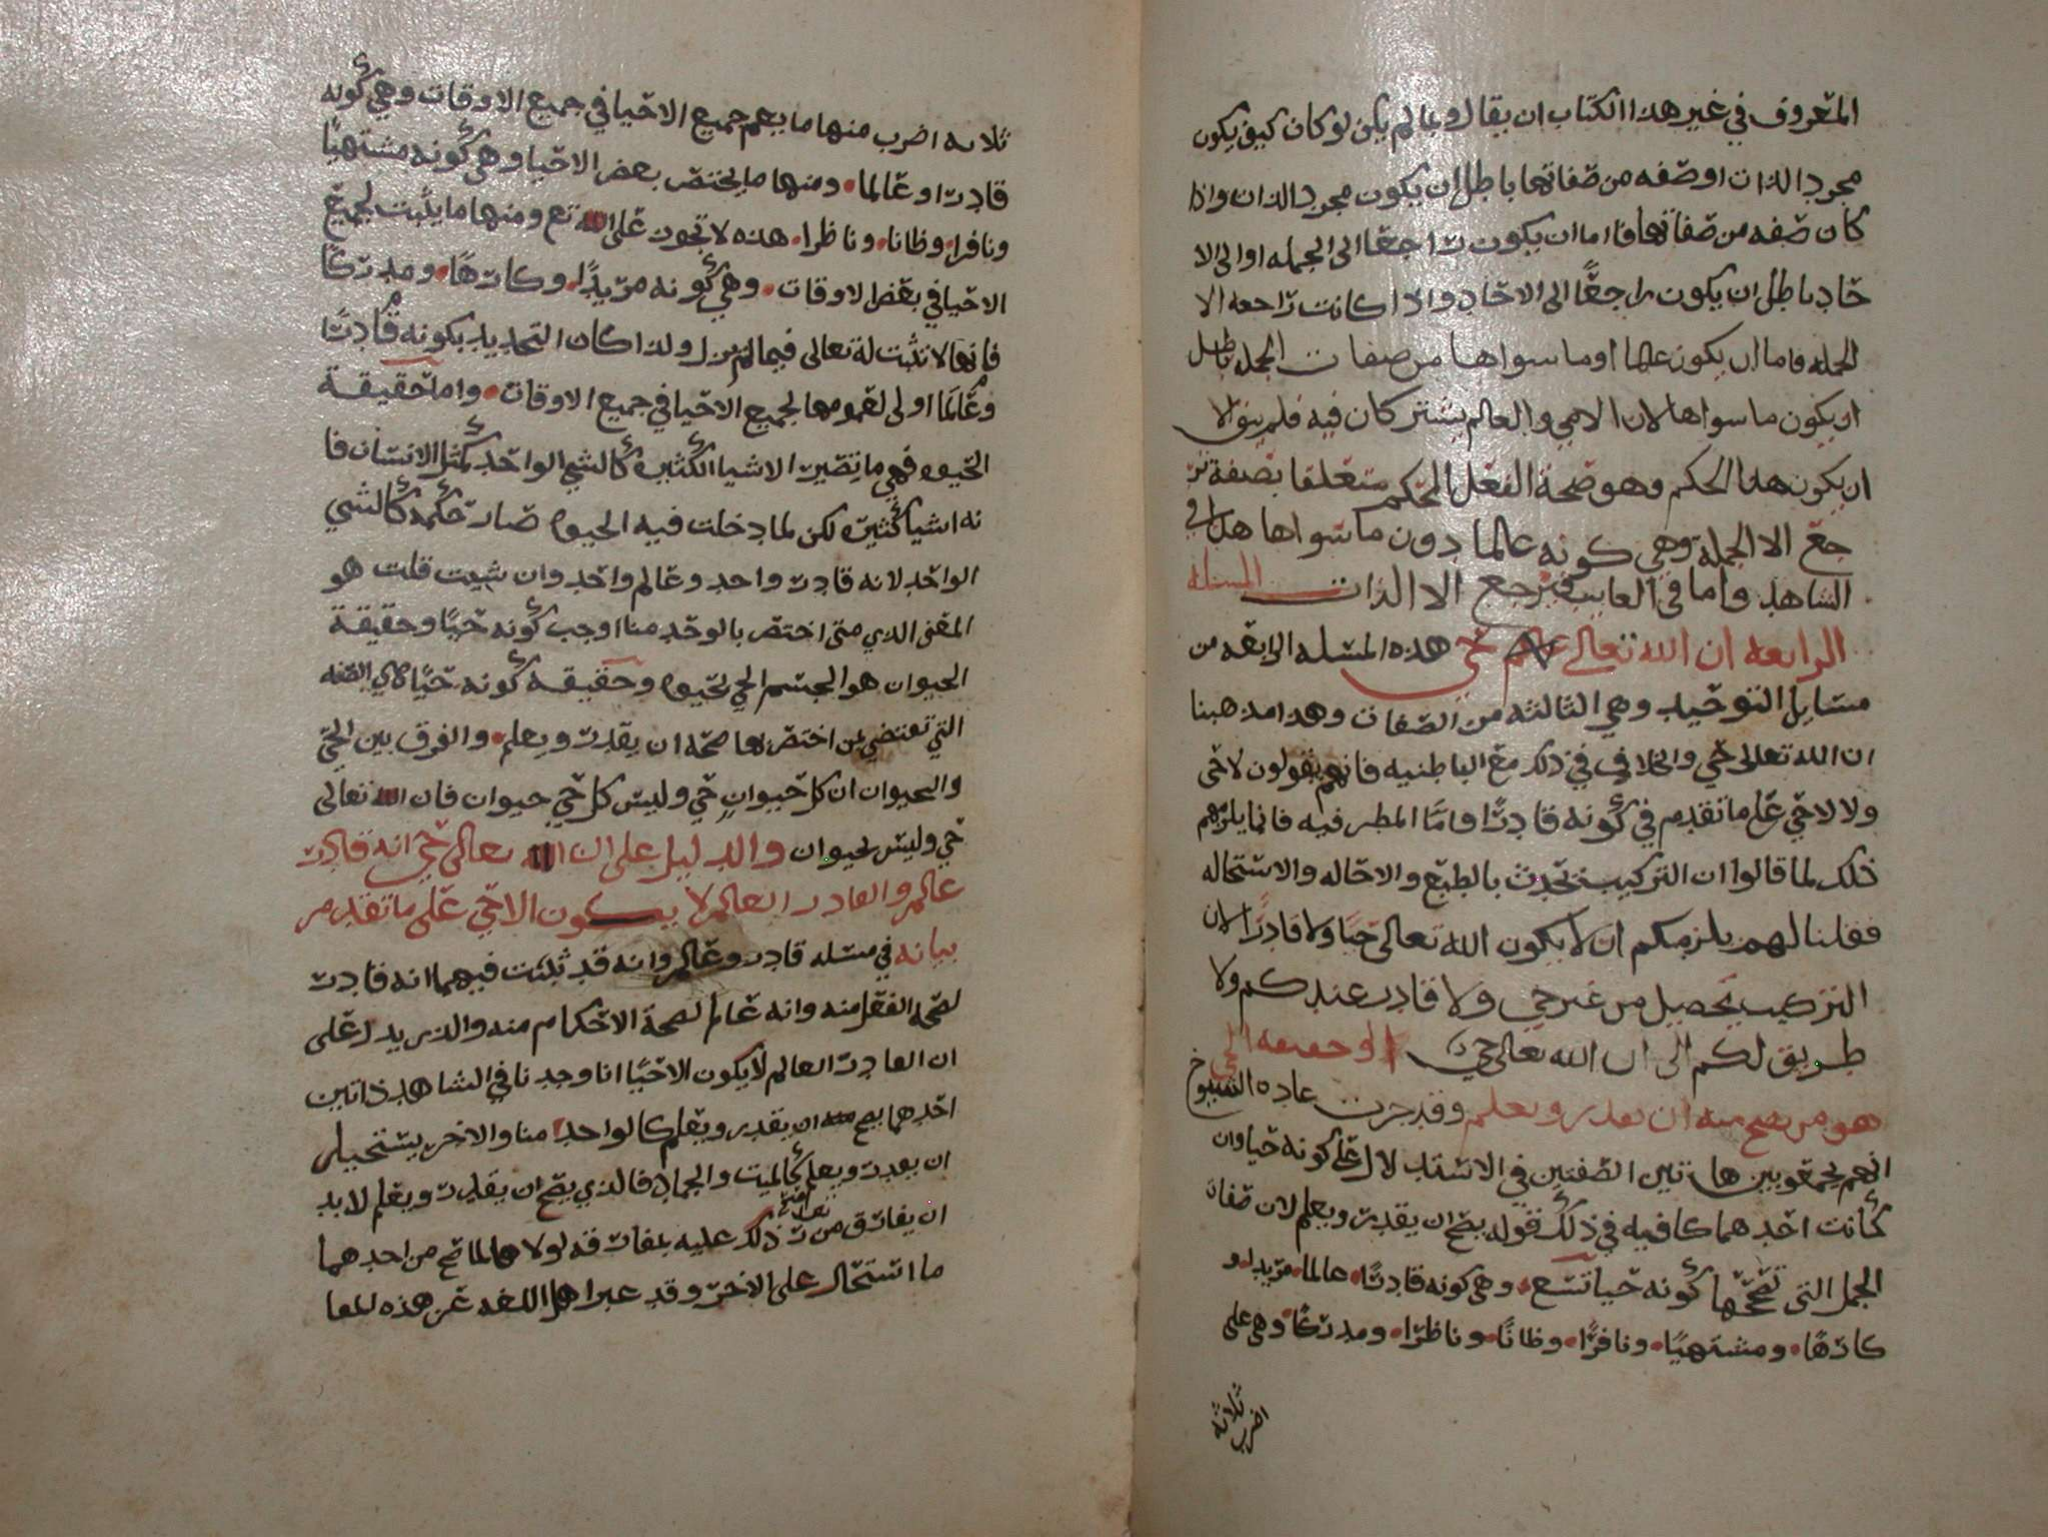 المعروف في غير هذا الكتاب ان يقال وما لم يكن لو كان كيف يكون
مجرد الذات او صفه من صفاتها باطل ان يكون مجرد الذات واذا
كان صفه من صفاتها فاما ان يكون راجعا الى الجمله او الى الا
حاد باطل ان يكون راجعًا الى الاحاد واذا كانت راجعه الا
الجمله فاما ان يكون عالما او ما سواها من صفات الجمله باطل
ان يكون ما سواها لان الامي والعالم يشتركان فيه فلم يبق الا
ان يكون هذا الحكم وهو صحة الفعل المحكم متعلقا بصفة تر
جع الا الجملة وهي كونه عالما دون ما سواها هذا في
الشاهد واما في الغايب فيرجع الا الذات المسئله
الرابعه ان الله تعالى حي هذه المسئله الرابعه من
مسايل التوحيد وهي الثالثه من الصفات وهذا مذهبنا
ان الله تعالى حي والخلاف في ذلك مع الباطنيه فانهم يقولون لا حي
ولا لا حي على ما تقدم في كونه قادرًا واما المطرفيه فانما يلزمهم
ذلك لما قالوا ان التركيب يحدث بالطبع والاحاله والاستحاله
فقلنا لهم يلزمكم ان لا يكون الله تعالى حيا ولا قادرا لان
التركيب يحصل من غير حي ولا قادر عندكم ولا
طريق لكم الى ان الله تعالى حي وحقيقه الحي
هو من يصح منه ان يقدر ويعلم وقد جرت عادة الشيوخ
انهم يجمعو بين هاتين الصفتين في الاستدلال على كونه حيا وان
كانت احدهما كافيه في ذلك فقوله يصح ان يقدر ويعلم لان صفات
الجمل التي تصححها كونه حيا تسع وهي كونه قادرًا عالما مريدا و
كارهًا ومشتهيًا ونافرًا وظانًا وناظرًا ومدركًا وهي على
ثلاثة اضرب
ثلاثه اضرب منها ما يعم جميع الاحيا في جميع الاوقات وهي كونه
قادرا وعالما ومنها ما يختص بعض الاحيا وهي كونه مشتهيًا
ونافرا وظانا وناظرا هذه لا تجوز على الله تع ومنها ما يثبت لجميع
الاحيا في بعض الاوقات وهي كونه مريدًا وكارهًا ومدركًا
فانها لا تثبت له تعالى فيما لم يزل ولذا كان التحديد بكونه قادرًا
وعالمًا اولى لعمومها لجميع الاحيا في جميع الاوقات واما حقيقة
الحيوه فهي ما تصير الاشيا الكثيره كالشي الواحد كمثل الانسان فا
نه اشيا كثيره لكن لما دخلت فيه الحيوه صار حكمه كالشي
الواحد لانه قادر واحد وعالم واحد وان شيت قلت هو
المعنى الذي متى اختص بالوحد منا اوجب كونه حيًا وحقيقة
الحيوان هو الجسم الحي بحيوه وحقيقه كونه حيًا هي الصفه
التي تقتضي لمن اختص بها صحه ان يقدر ويعلم والفرق بين الحي
والحيوان ان كل حيوان حي وليس كل حي حيوان فان الله تعالى
حي وليس بحيوان والدليل على ان الله تعالى حي انه قادر
عالم والقادر العالم لا يكون الا حي على ما تقدم
بيانه في مسئله قادر وعالم وانه قد ثبت فيهما انه قادر
لصحه الفعل منه وانه عالم لصحة الاحكام منه والذي يدل على
ان القادر العالم لا يكون الا حيًا انا وجدنا في الشاهد ذاتين
احدهما يصح منه ان يقدر ويعلم كالواحد منا والاخر يستحيل
ان يقدر ويعلم كالميت والجماد فالذي يصح ان يقدر ويعلم لا بد
ان يفارق من ذلك عليه بمفارقه لولاها لما صح من احدهما
ما استحال على الاخر وقد عبر اهل اللغه عن هذه المفا